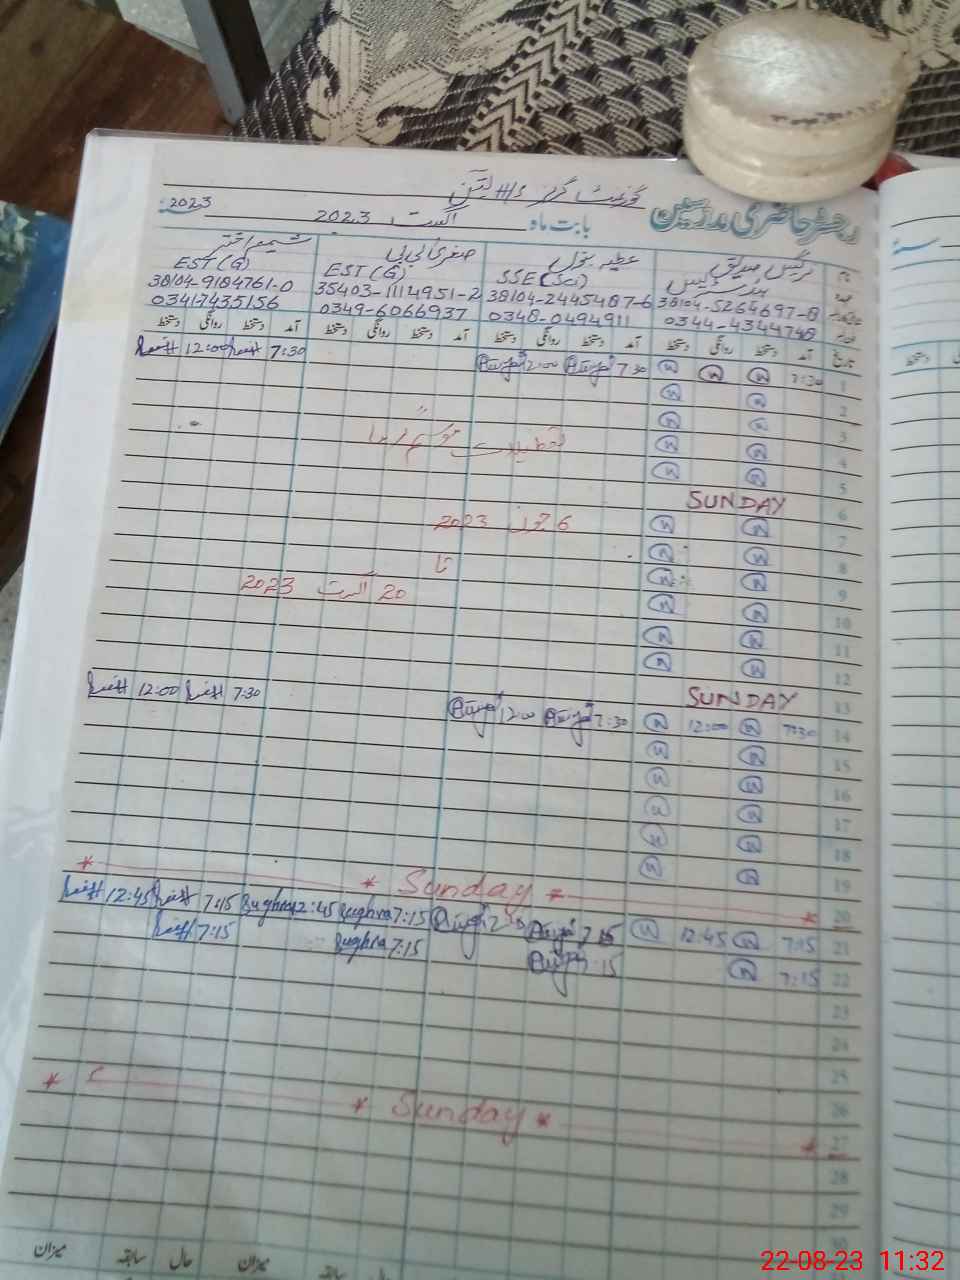 گورنمنٹ گرلز H/S
رجسٹر حاضری مدرسین بابت ماہ اگست 2023 سنہ 2023
نام نرگس صدیق عطیہ بتول صغریٰ بی بی شمیم اختر
عہدہ ہیڈ مسٹریس SSE (Sci) EST (G) EST (G)
38104-5264697-8 38104-2445487-6 35403-1114951-2 38104-9184761-0
0344-4344748 0348-0494911 0349-6066937 03417435156
تاریخ آمد دستخط روانگی دستخط آمد دستخط روانگی دستخط آمد دستخط روانگی دستخط آمد دستخط روانگی دستخط
1 7:30 7:30 12:00 7:30 12:00
2
3
تعطیلات موسم گرما
4
5
6 SUNDAY
7 6 جون 2023
8 تا
9 20 اگست 2023
10
11
12
13 SUNDAY
14 7:30 12:00 7:30 12:00 7:30 12:00
15
16
17
18
19
20 * Sunday *
21 7:15 12:45 7:15 7:15 Sughra 12:45 Sughra 7:15 12:45
22 7:15 7:15 7:15 Sughra 7:15
23
24
25
26
27 * Sunday *
28
29
30
میزان حال سابقہ میزان
سابقہ حال
22-08-23 11:32